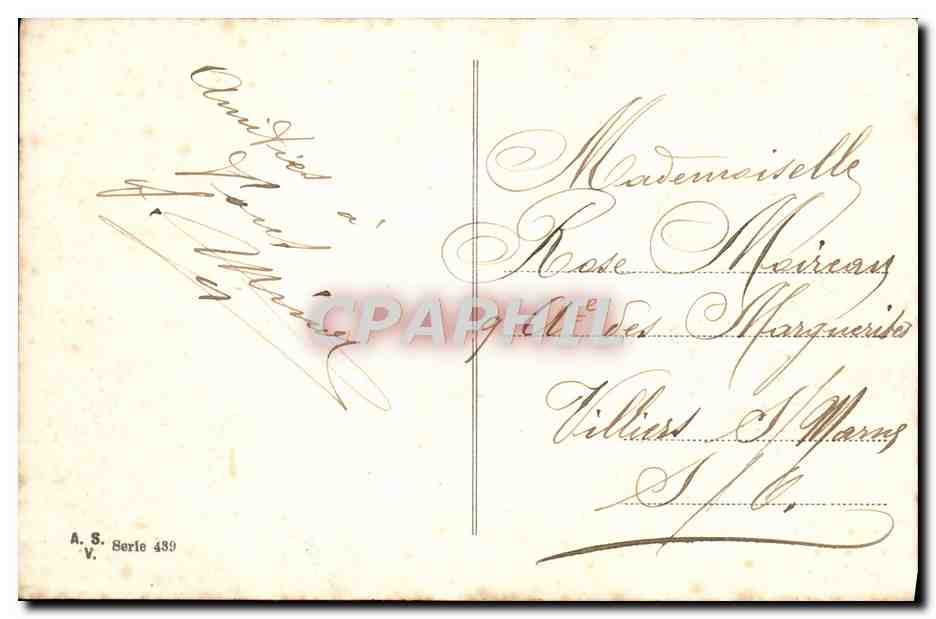 Amitiés
à
Mademoiselle
Rose Moireau
9 All.e des Marguerites
Villiers S/Marne
S/O.
CPAPHIL
A. S.
V. Serie 439